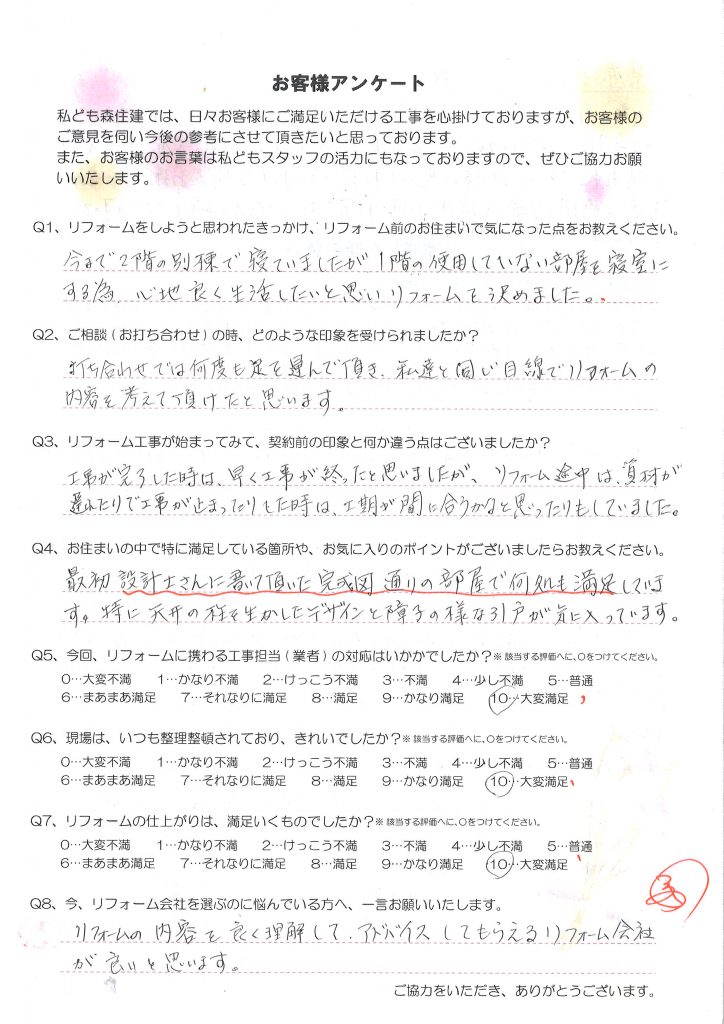 お客様アンケート
私ども森住建では、日々お客様にご満足いただける工事を心掛けておりますが、お客様の
ご意見を伺い今後の参考にさせて頂きたいと思っております。
また、お客様のお言葉は私どもスタッフの活力にもなっておりますので、ぜひご協力お願
いいたします。
Q1、リフォームをしようと思われたきっかけ、リフォーム前のお住まいで気になった点をお教えください。
今まで2階の別棟で寝ていましたが1階の使用していない部屋を寝室に
する為、心地良く生活したいと思いリフォームを決めました。
Q2、ご相談(お打ち合わせ)の時、どのような印象を受けられましたか?
打ち合わせでは何度も足を運んで頂き、私達と同じ目線でリフォームの
内容を考えて頂けたと思います。
Q3、リフォーム工事が始まってみて、契約前の印象と何か違う点はございましたか?
工事が完了した時は、早く工事が終ったと思いましたが、リフォーム途中は、資材が
遅れたりで工事が止まったりした時は、工期が間に合うかなと思ったりもしていました。
Q4、お住まいの中で特に満足している箇所や、お気に入りのポイントがございましたらお教えください。
最初設計士さんに書いて頂いた完成図通りの部屋で何処も満足していま
す。特に天井の柱を生かしたデザインと障子の様な引戸が気に入っています。
Q5、今回、リフォームに携わる工事担当(業者)の対応はいかがでしたか?※該当する評価へに、○をつけてください。
0…大変不満 1…かなり不満 2…けっこう不満 3…不満 4…少し不満 5…普通
6…まあまあ満足 7…それなりに満足 8…満足 9…かなり満足 10…大変満足
Q6、現場は、いつも整理整頓されており、きれいでしたか?※該当する評価へに、○をつけてください。
0…大変不満 1…かなり不満 2…けっこう不満 3…不満 4…少し不満 5…普通
6…まあまあ満足 7…それなりに満足 8…満足 9…かなり満足 10…大変満足
Q7、リフォームの仕上がりは、満足いくものでしたか?※該当する評価へに、○をつけてください。
0…大変不満 1…かなり不満 2…けっこう不満 3…不満 4…少し不満 5…普通
6…まあまあ満足 7…それなりに満足 8…満足 9…かなり満足 10…大変満足
Q8、今、リフォーム会社を選ぶのに悩んでいる方へ、一言お願いいたします。
リフォームの内容を良く理解して、アドバイスしてもらえるリフォーム会社
が良いと思います。
ご協力をいただき、ありがとうございます。